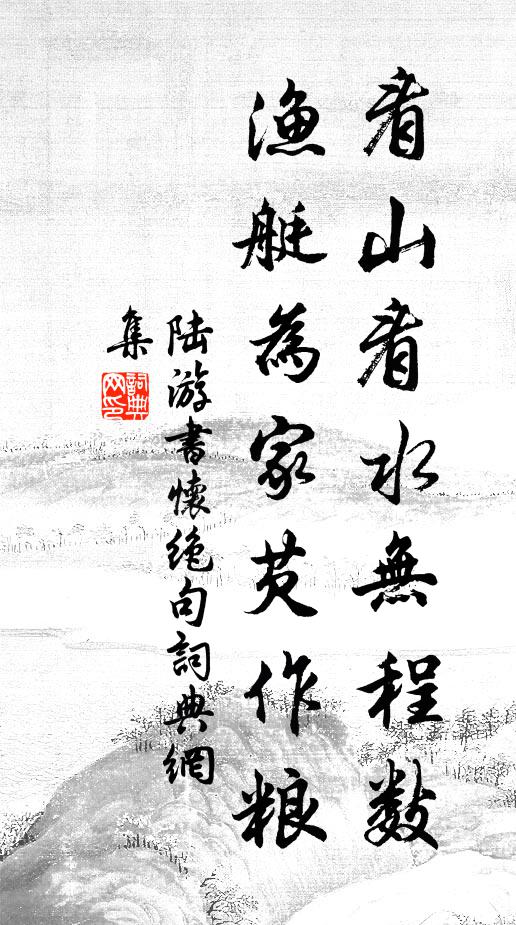 看山看水無程數
漁艇為家芡作粮
陸游書懷絕句詞典網
集
詞典
网印